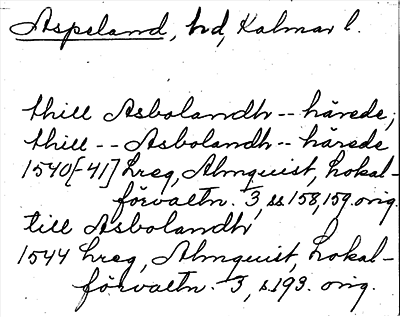 Aspeland, hd, Kalmar l.
thill Asbolandh -- härede,
thill -- Asbolandh -- härede
1540[-41] hreg, Almquist, Lokal-
förvaltn. 3, ss 158, 159. orig.
till Asbolandh
1544 hreg, Almquist, Lokal-
förvaltn. 3, s. 193. orig.